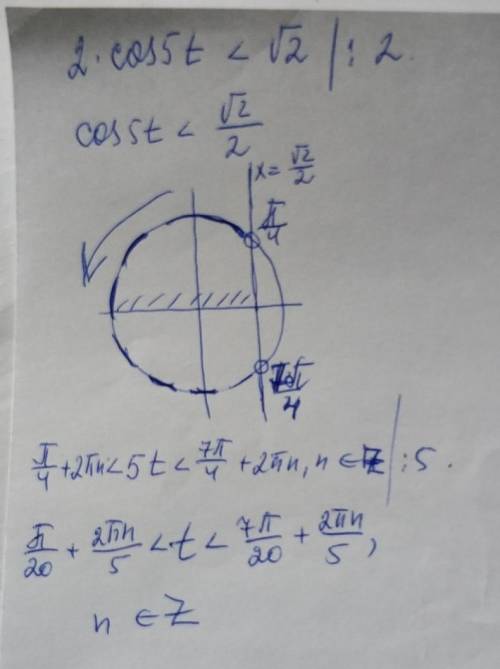 2·cos5t < √2 | : 2.
cos5t < √2/2
x = √2/2
π/4
7π/4
π/4 + 2πn < 5t < 7π/4 + 2πn, n ∈ Z | : 5.
π/20 + 2πn/5 < t < 7π/20 + 2πn/5,
n ∈ Z